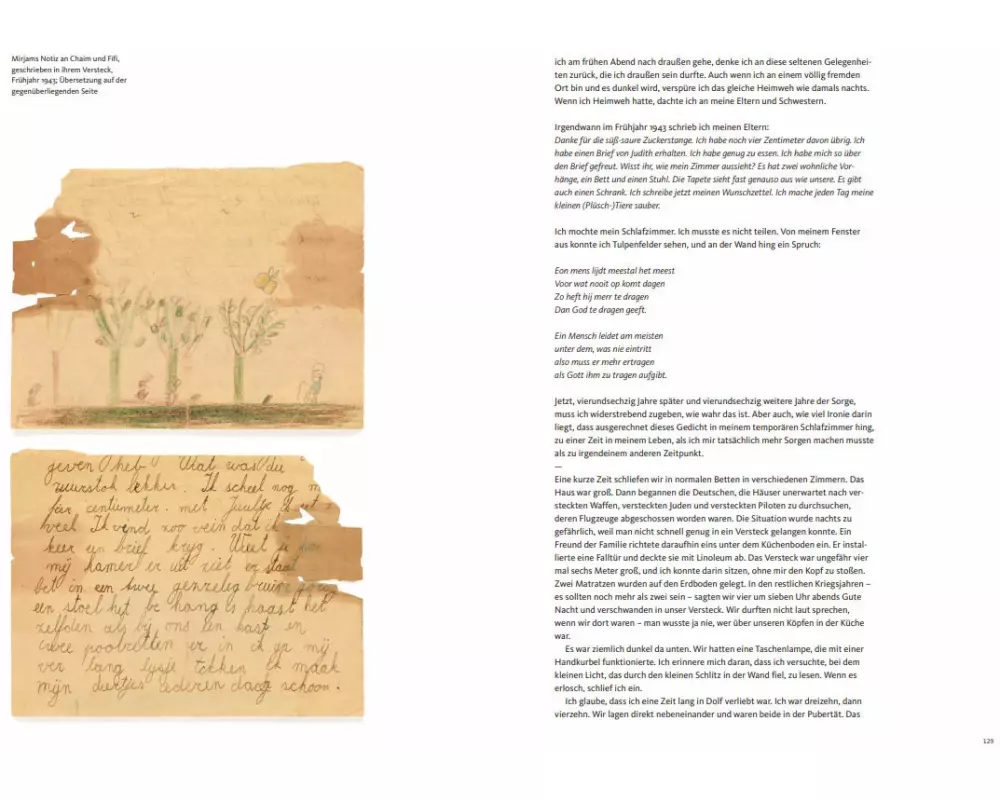 Mirjams Notiz an Chaim und Fifi,
geschrieben in ihrem Versteck,
Frühjahr 1943; Übersetzung auf der
gegenüberliegenden Seite
geven heb Wat was die
zuurstok lekker. Ik nog
centumeter. met
veel Ik vind zoo vein dat ik
keer een brief kryg. Weet je
mij kamer er uit ziet er staat
bet in een twee bruin
een stoel het be hang is haast het
zelfden als bij ons een kast en
twee er in ik ga mij
ver lang lysje Ik maak
mijn diertjes iederen dag schoon.
ich am frühen Abend nach draußen gehe, denke ich an diese seltenen Gelegenhei-
ten zurück, die ich draußen sein durfte. Auch wenn ich an einem völlig fremden
Ort bin und es dunkel wird, verspüre ich das gleiche Heimweh wie damals nachts.
Wenn ich Heimweh hatte, dachte ich an meine Eltern und Schwestern.
Irgendwann im Frühjahr 1943 schrieb ich meinen Eltern:
Danke für die süß-saure Zuckerstange. Ich habe noch vier Zentimeter davon übrig. Ich
habe einen Brief von Judith erhalten. Ich habe genug zu essen. Ich habe mich so über
den Brief gefreut. Wisst ihr, wie mein Zimmer aussieht? Es hat zwei wohnliche Vor-
hänge, ein Bett und einen Stuhl. Die Tapete sieht fast genauso aus wie unsere. Es gibt
auch einen Schrank. Ich schreibe jetzt meinen Wunschzettel. Ich mache jeden Tag meine
kleinen (Plüsch-)Tiere sauber.
Ich mochte mein Schlafzimmer. Ich musste es nicht teilen. Von meinem Fenster
aus konnte ich Tulpenfelder sehen, und an der Wand hing ein Spruch:
Eon mens lijdt meestal het meest
Voor wat nooit op komt dagen
Zo heft hij merr te dragen
Dan God te dragen geeft.
Ein Mensch leidet am meisten
unter dem, was nie eintritt
also muss er mehr ertragen
als Gott ihm zu tragen aufgibt.
Jetzt, vierundsechzig Jahre später und vierundsechzig weitere Jahre der Sorge,
muss ich widerstrebend zugeben, wie wahr das ist. Aber auch, wie viel Ironie darin
liegt, dass ausgerechnet dieses Gedicht in meinem temporären Schlafzimmer hing,
zu einer Zeit in meinem Leben, als ich mir tatsächlich mehr Sorgen machen musste
als zu irgendeinem anderen Zeitpunkt.
—
Eine kurze Zeit schliefen wir in normalen Betten in verschiedenen Zimmern. Das
Haus war groß. Dann begannen die Deutschen, die Häuser unerwartet nach ver-
steckten Waffen, versteckten Juden und versteckten Piloten zu durchsuchen,
deren Flugzeuge abgeschossen worden waren. Die Situation wurde nachts zu
gefährlich, weil man nicht schnell genug in ein Versteck gelangen konnte. Ein
Freund der Familie richtete daraufhin eins unter dem Küchenboden ein. Er instal-
lierte eine Falltür und deckte sie mit Linoleum ab. Das Versteck war ungefähr vier
mal sechs Meter groß, und ich konnte darin sitzen, ohne mir den Kopf zu stoßen.
Zwei Matratzen wurden auf den Erdboden gelegt. In den restlichen Kriegsjahren –
es sollten noch mehr als zwei sein – sagten wir vier um sieben Uhr abends Gute
Nacht und verschwanden in unser Versteck. Wir durften nicht laut sprechen,
wenn wir dort waren – man wusste ja nie, wer über unseren Köpfen in der Küche
war.
Es war ziemlich dunkel da unten. Wir hatten eine Taschenlampe, die mit einer
Handkurbel funktionierte. Ich erinnere mich daran, dass ich versuchte, bei dem
kleinen Licht, das durch den kleinen Schlitz in der Wand fiel, zu lesen. Wenn es
erlosch, schlief ich ein.
Ich glaube, dass ich eine Zeit lang in Dolf verliebt war. Ich war dreizehn, dann
vierzehn. Wir lagen direkt nebeneinander und waren beide in der Pubertät. Das
129